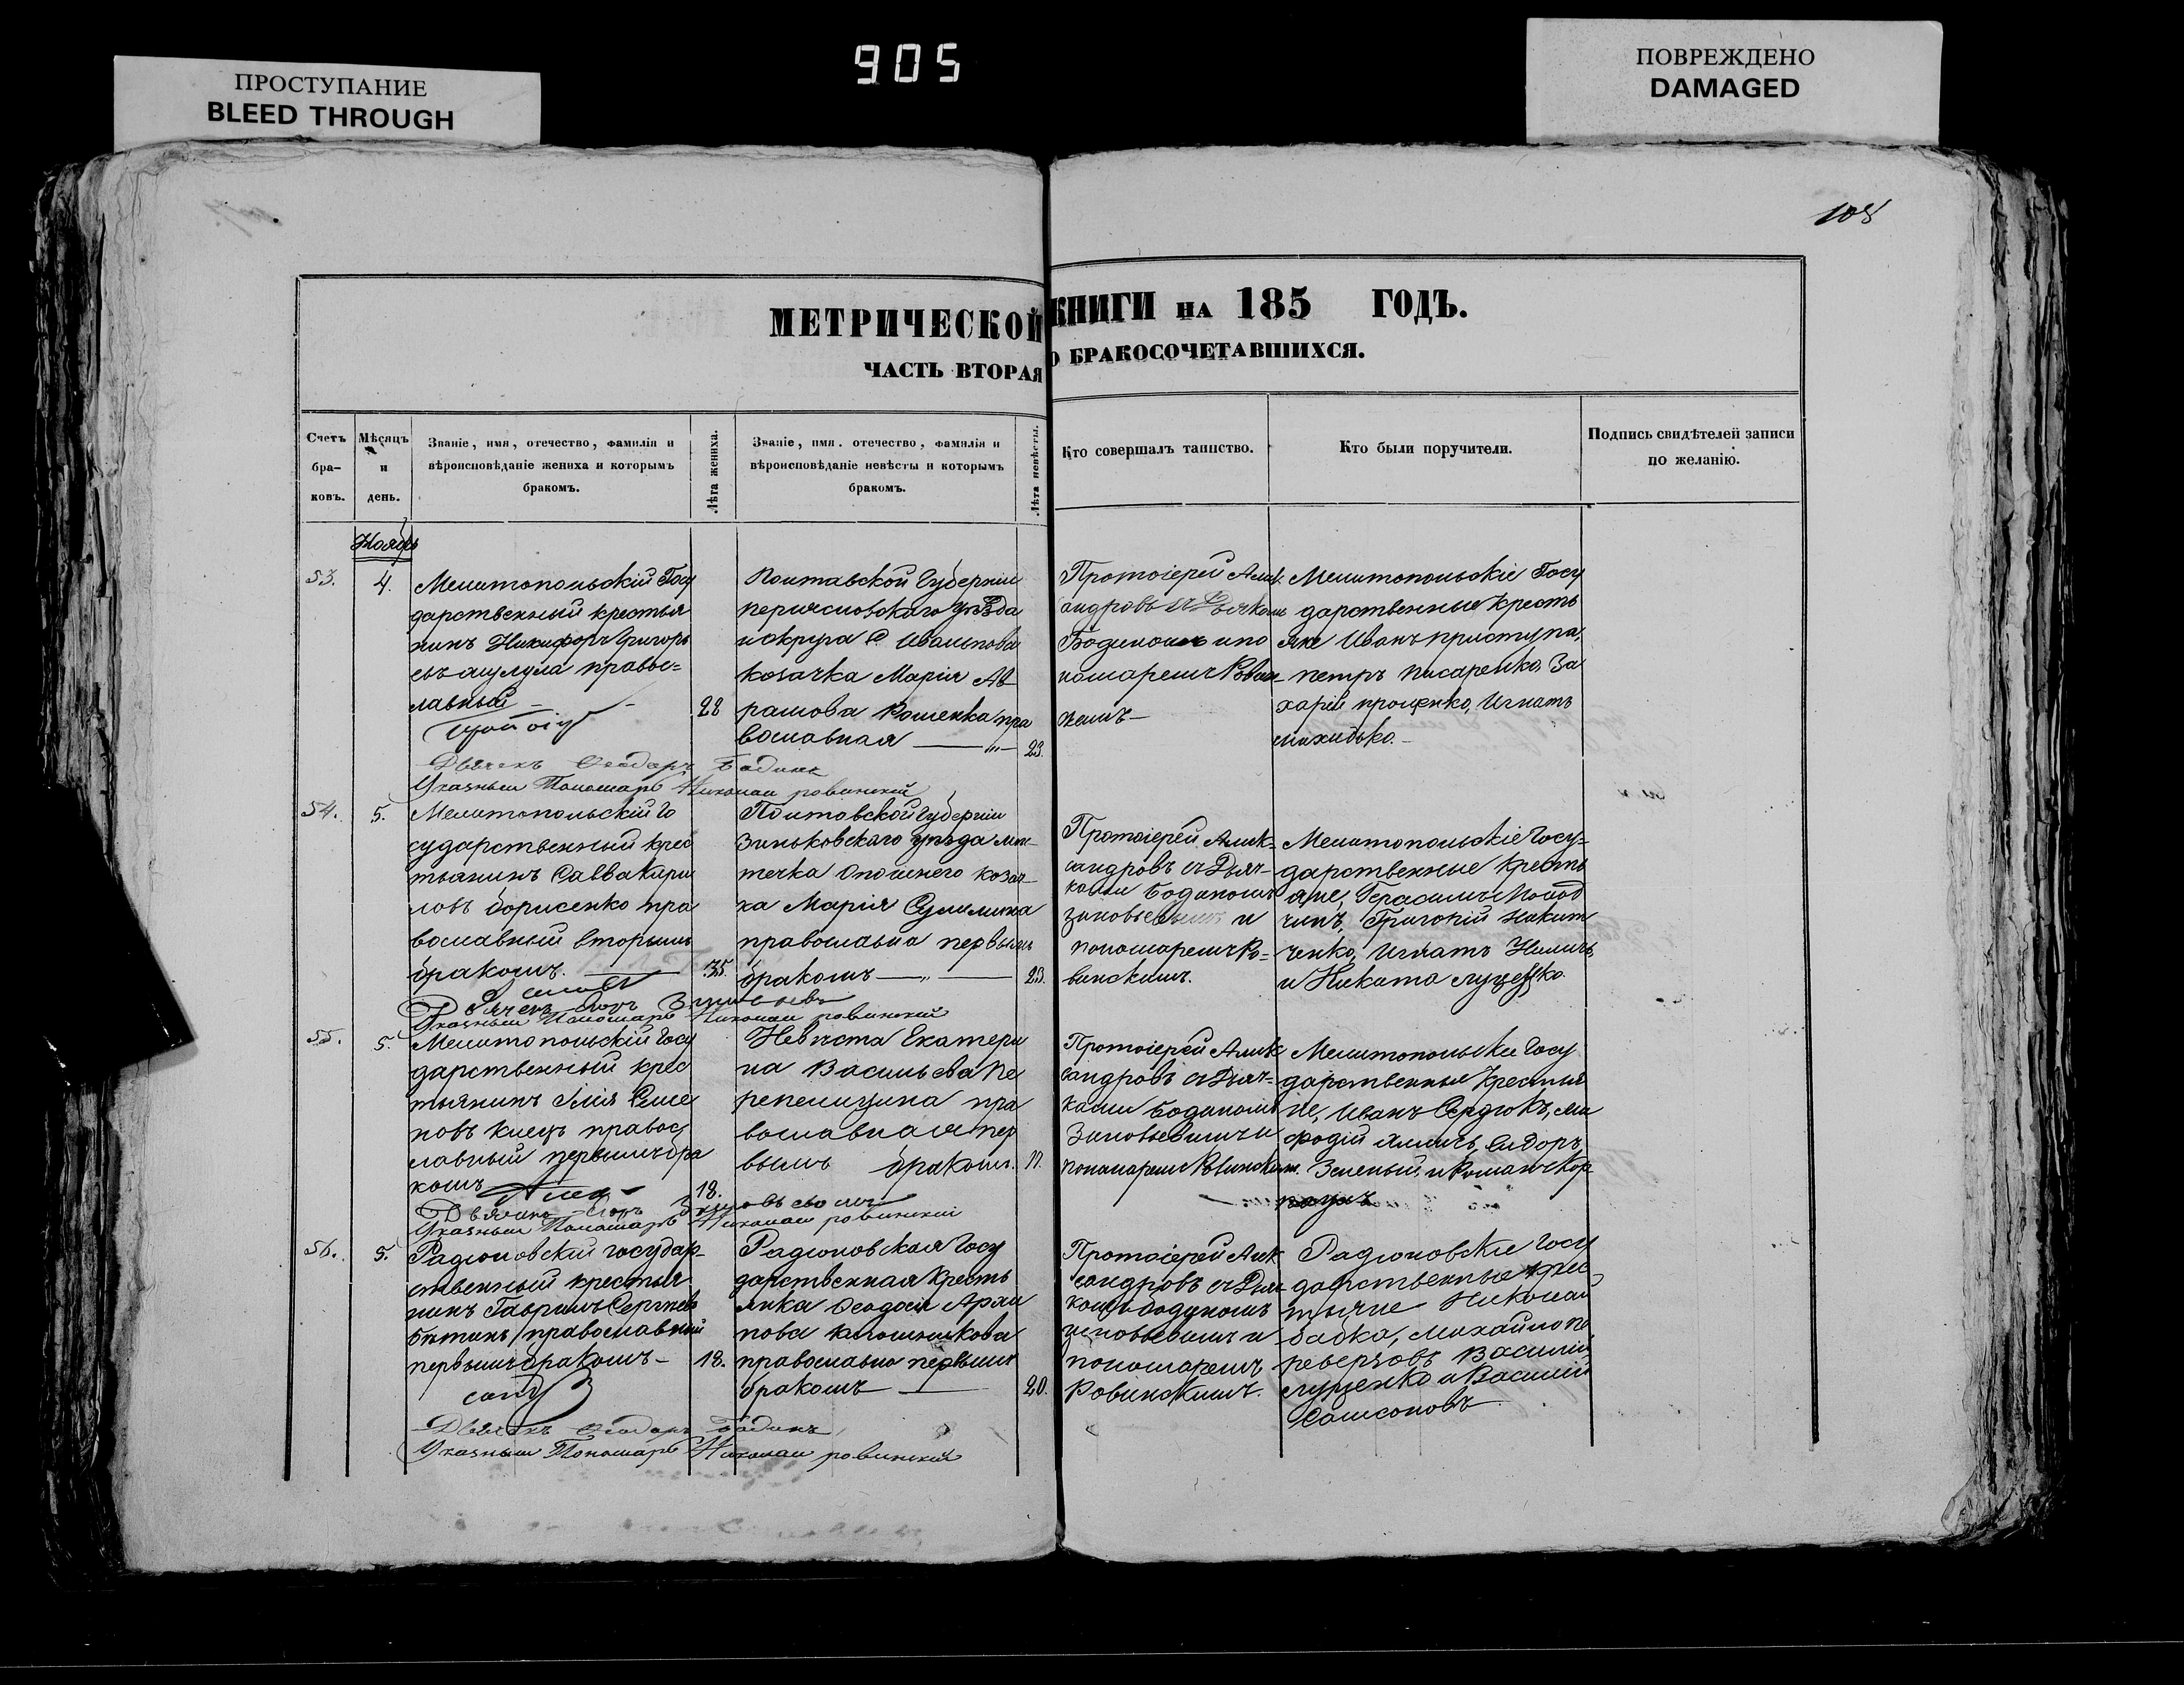 905
ПРОСТУПАНИЕ
BLEED THROUGH
ПОВРЕЖДЕНО
DAMAGED
108
МЕТРИЧЕСКОЙ КНИГИ НА 185 ГОДЪ.
ЧАСТЬ ВТОРАЯ О БРАКОСОЧЕТАВШИХСЯ.
Счетъ
бра-
ковъ.
Мѣсяцъ
и
день.
Званіе, имя, отечество, фамилія и
вѣроисповѣданіе жениха и которымъ
бракомъ.
Лѣта жениха.
Званіе, имя, отечество, фамилія и
вѣроисповѣданіе невѣсты и которымъ
бракомъ.
Лѣта невѣсты.
Кто совершалъ таинство.
Кто были поручители.
Подпись свидѣтелей записи
по желанію.
Ноябрь
53.
4.
Мелитопольскій Госу
дарственный крестья
нинъ Никифоръ Григорь
евъ правос=
лавный
28
Полтавской Губерніи
уѣзда
и округа
козачка Марія Ав
рамова пра
вославная
23.
Протоіерей Алек
сандровъ съ Дьячком
и по
номаремъ
Мелитопольскіе Госу
дарственные кресть
яне Иванъ приступа,
петръ писаренко, За
харій проценко, Игнатъ
Дьячекъ Феодоръ Бодинъ
Указный Пономарь Николай ровинскій
54.
5.
Мелитопольскій Го
сударственный крес
тьянинъ Савва Кири
ловъ борисенко пра
вославный вторымъ
бракомъ.
35.
Полтавской Губерніи
Зиньковскаго уѣзда мѣс-
течка Опошнего козач-
ка Марія
православна первымъ
бракомъ
23.
Протоіерей Алек-
сандровъ съ Дьяч-
ками Бодиномъ
и
пономаремъ Ро-
винскимъ.
Мелитопольскіе Госу-
дарственные кресть
яне, Герасимъ
Григорій Никит
ченко, Игнатъ
и Никита луценко.
Указный Пономарь Николай ровинскій
55.
5.
Мелитопольскій Госу
дарственный крес
тьянинъ Илія Семе
новъ правос
лавный первымъ бра
комъ
18.
Невѣста Екатери
на Васильева Пе
репелицина пра
вославная пер
вымъ бракомъ.
17.
Протоіерей Алек
сандровъ съ Дьяч-
ками Бодиномъ
Зиновьевымъ и
пономаремъ Ровинским.
Мелитопольскіе Госу
дарственные крестья
не, Иванъ Сердюкъ, Ме
фодій Сидоръ
Зеленый, и Романъ Кор
Указный Пономарь Николай ровинскій
56.
5.
Радіоновскій государ-
ственный крестья
нинъ Гавріилъ Сергѣевъ
православный
первымъ бракомъ
18.
Радіоновская Госу
дарственная кресть
янка Феодосія Архи
пова
православна первымъ
бракомъ
20.
Протоіерей Алек
сандровъ съ Дья
и
пономаремъ
Ровинскимъ.
Радіоновскіе Госу
дарственные крес
тьяне Николай
бабка, Михайло пе
реверзовъ Василій
луценко и Василій
Самсоновъ
Дьячекъ Феодоръ Бодинъ
Указный Пономарь Николай ровинскій